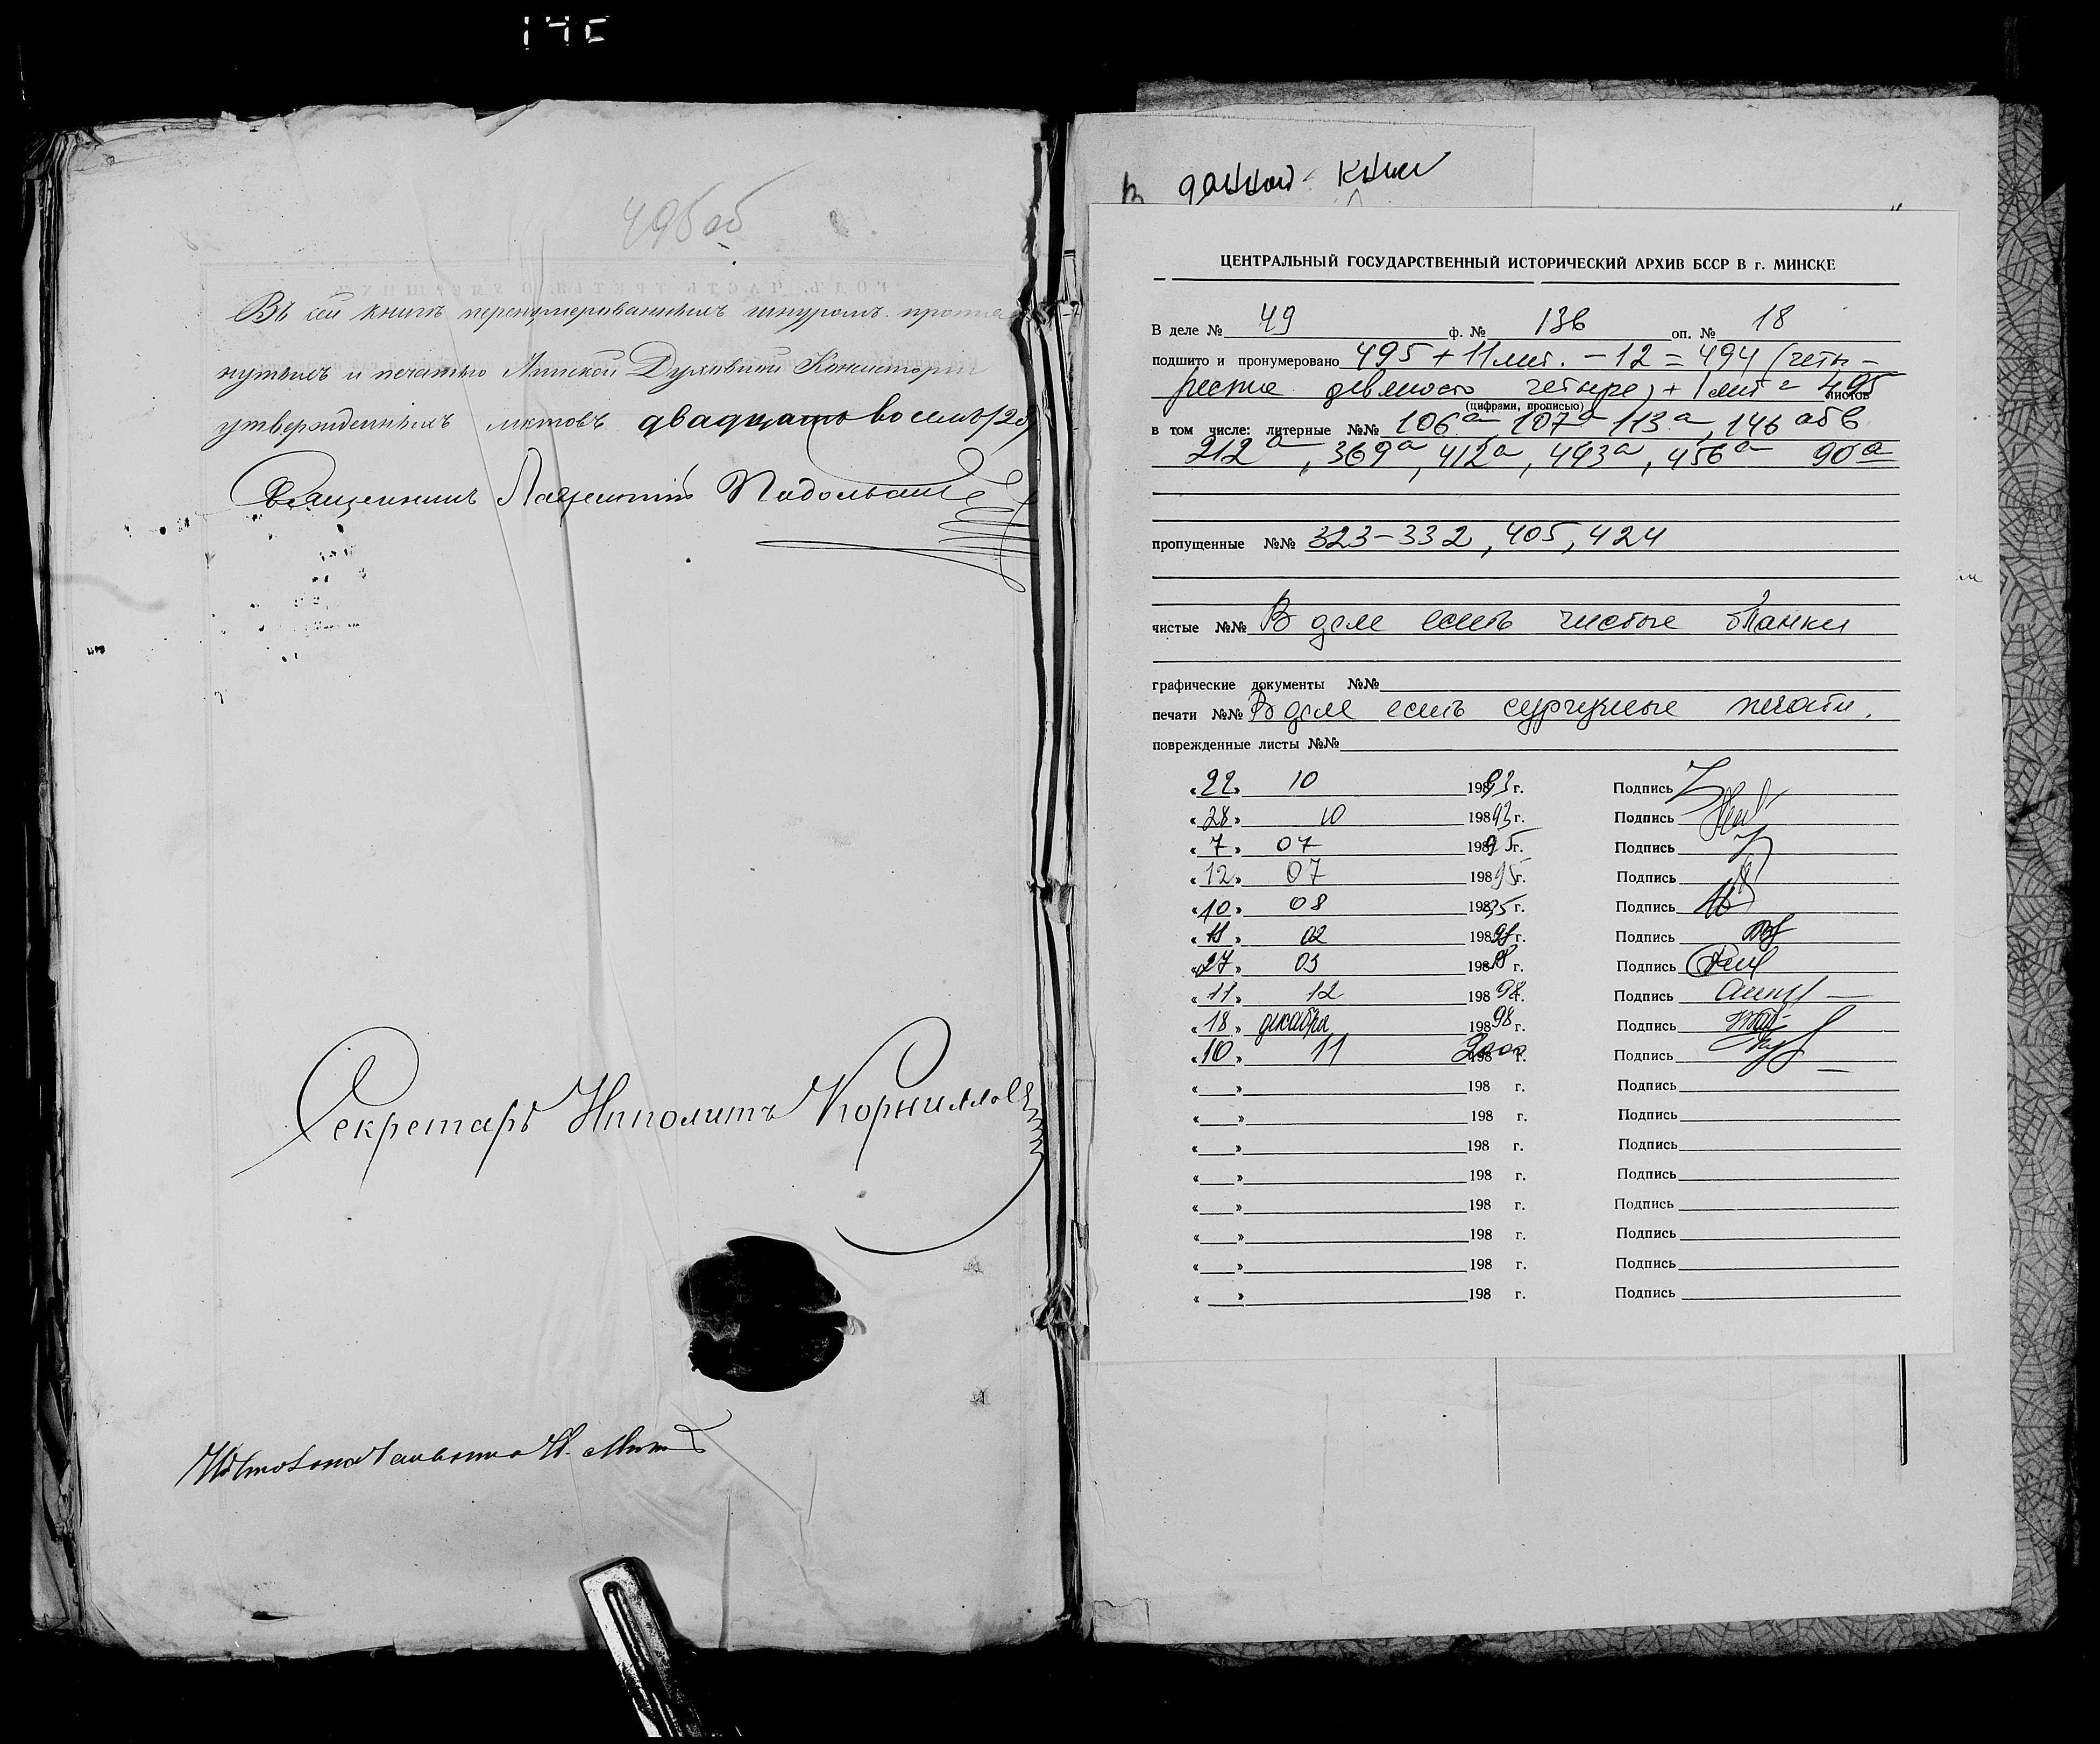 495об
Въ сей книгѣ перенумерованныхъ шнуромъ протяг
нутыхъ и печатью Минской Духовной Консисторіи
утвержденныхъ листовъ двадцать восемь (28)
Священникъ Лаврентій Подольскій
Секретарь Ипполитъ Корнилловъ
Столоначальникъ
В данной книг
ЦЕНТРАЛЬНЫЙ ГОСУДАРСТВЕННЫЙ ИСТОРИЧЕСКИЙ АРХИВ БССР В г. МИНСКЕ
В деле № 49 ф. № 136 оп. № 18
подшито и пронумеровано 495 + 11 лит. - 12 = 494 (четы-
реста девяносто четыре) + 1 лит = 495 листов
(цифрами, прописью)
в том числе: литерные №№ 106а 107а 113а, 146 абв
212а, 369а, 412а, 443а, 456а 90а
пропущенные №№ 323-332, 405, 424
чистые №№ В деле есть чистые бланки
графические документы №№
печати №№ В деле есть сургучные печати.
поврежденные листы №№
«22» 10 19893 г. Подпись
«28» 10 19893 г. Подпись
«7» 07 19895 г. Подпись
«12» 07 19895 г. Подпись
«10» 08 19895 г. Подпись
«11» 02 19898 г. Подпись
«27» 03 19898 г. Подпись
«11» 12 19898 г. Подпись
«18» декабря 19898 г. Подпись
«10» 11 2000 198 г. Подпись
« » 198 г. Подпись
« » 198 г. Подпись
« » 198 г. Подпись
« » 198 г. Подпись
« » 198 г. Подпись
« » 198 г. Подпись
« » 198 г. Подпись
« » 198 г. Подпись